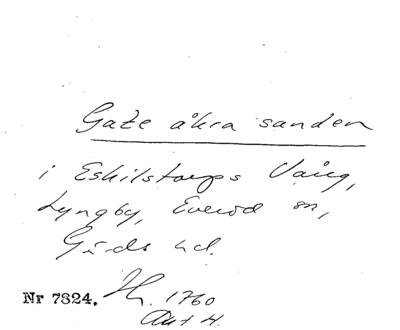 Gate åkra sanden
i Eskilstorps Vång,
Lyngby, Everöd sn,
Gärds hd.
Nr 7824. 1760
Akt 4.